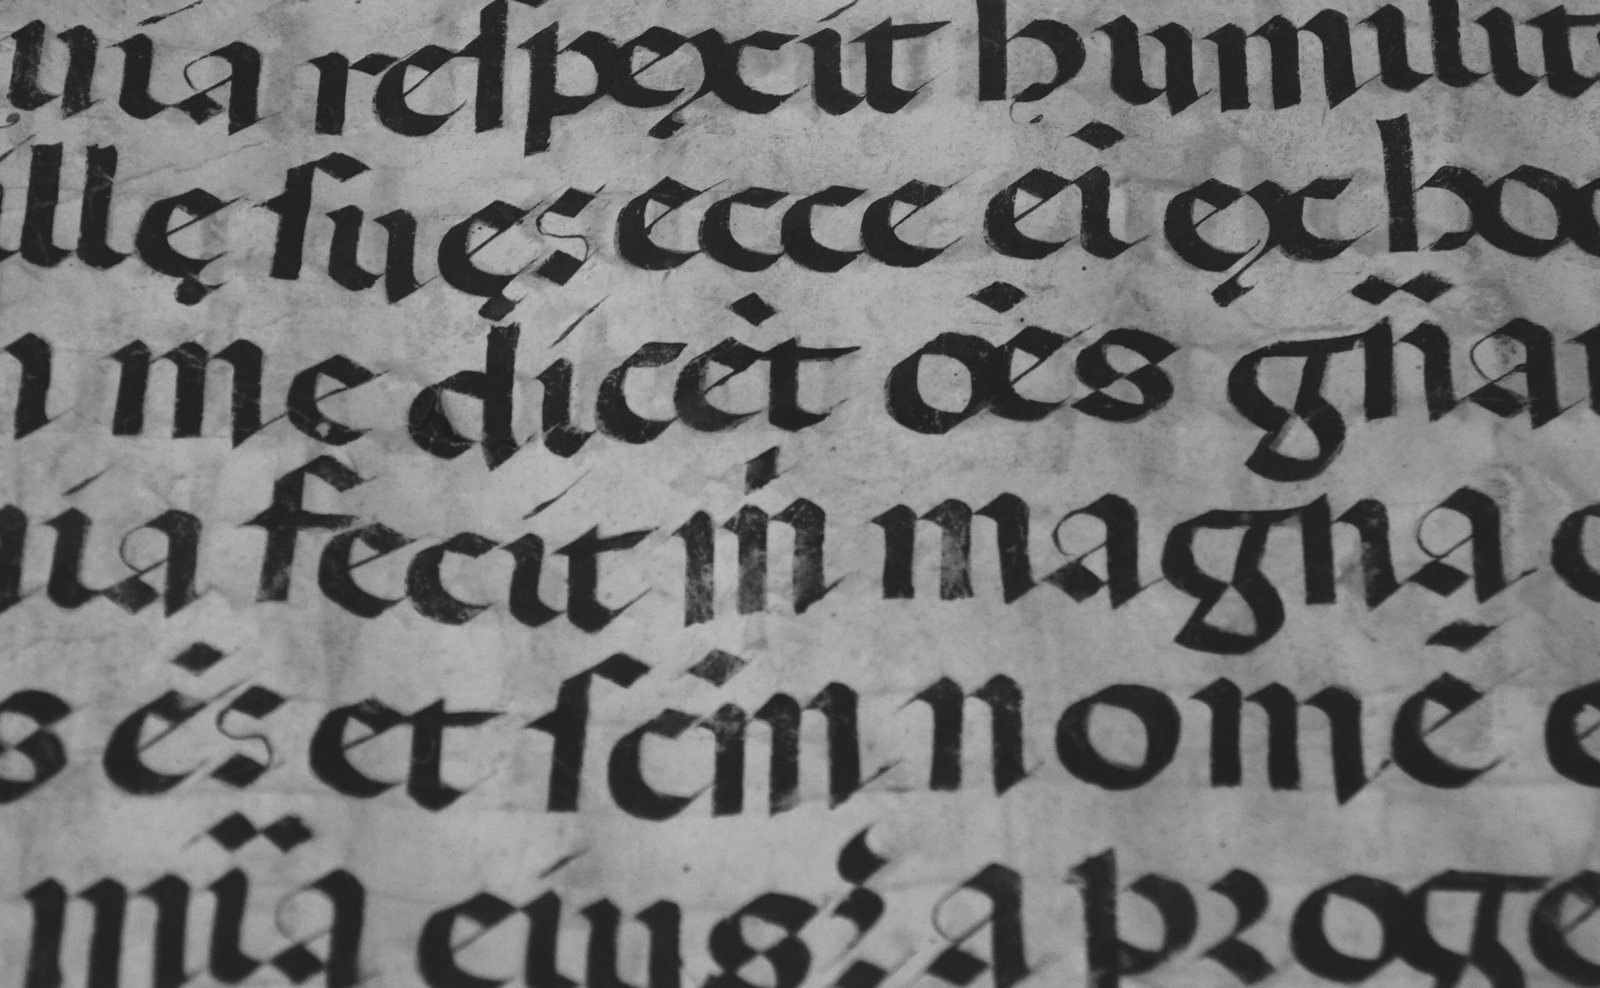 uia reſpexit humilit
illę ſuę: ecce ei̇ ex hoc
n me dicėt oės gn̈an
uia fecit m̍ magna q
s ė: et ſcṁ nomē e
mïa eius: a proge